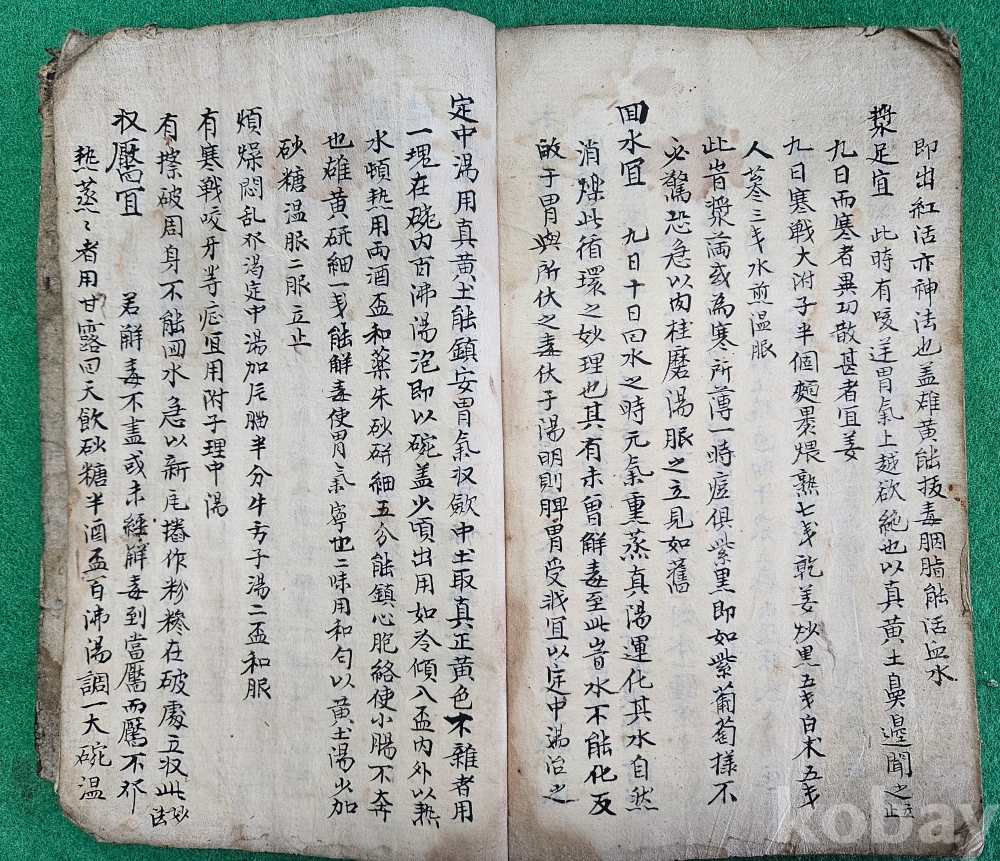 即出紅活亦神法也盖雄黃能拔毒胭脂能活血水
漿足宜 此時有咬逆胃氣上越欲絶也以真黃土鼻邊聞之立止
九日而寒者異功散甚者宜姜
九日寒戰大附子半個麺裹煨熟七戋乾姜炒黑五戋白术五戋
人蔘三戋水煎温服
此皆漿滿或為寒所薄一時痘俱紫黑即如紫葡萄様不
必驚恐急以肉桂磨湯服之立見如舊
囬水宜 九日十日曰水之時元氣熏蒸真陽運化其水自然
消爍此循環之妙理也其有未曽觧毒至此皆水不能化反
敀于胃與所伏之毒伏于陽明則脾胃受戕宜以定中湯治之
定中湯用真黃土能鎮安胃氣収歛中土取真正黃色不雜者用
一塊在碗内百沸湯泡即以碗盖少頃出用如冷傾入盃内外以熱
水頓熱用两酒盃和藥朱砂研細五分能鎮心胞絡使小腸不奔
也雄黃研細一戋能觧毒使胃氣寧也二味用和匀以黃土湯少加
砂糖温服二服立止
煩燥悶乱邪渴定中湯加辰𦠆半分牛旁子湯二盃和服
有寒戰咬牙等症宜用附子理中湯
有擦破周身不能囬水急以新瓦搗作粉糝在破處立収此妙法
収靨宜 若觧毒不盡或未經觧毒到當靨而靨不邪
熱蒸〻者用甘露回天飲砂糖半酒盃百沸湯調一大碗温
kobay